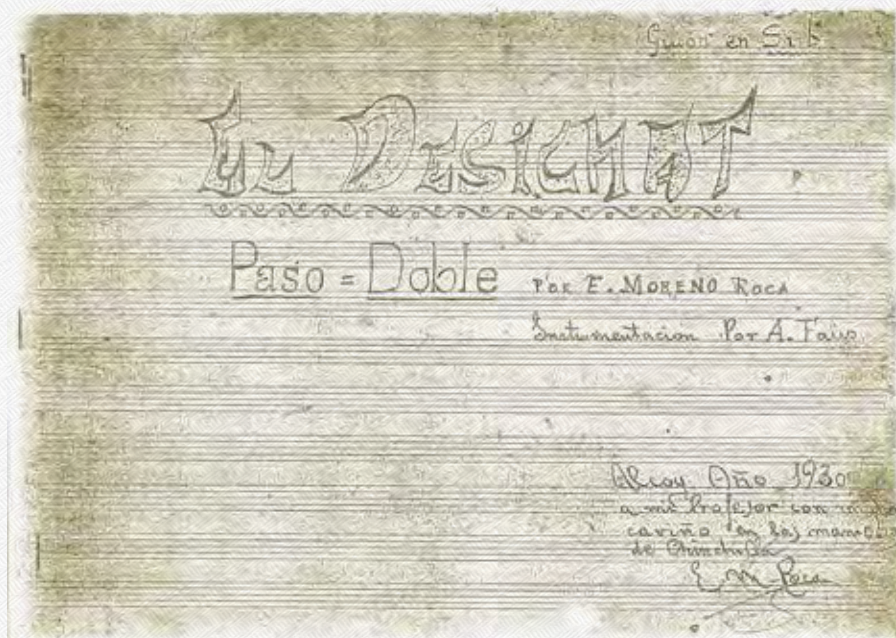 Guion en Si b
EL DESICHAT
Paso = Doble POR E. MORENO ROCA
Instrumentacion Por A. Faus
Alcoy Año 1930
a mi Profesor con
cariño en las
de Chinchilla
E. M. Roca